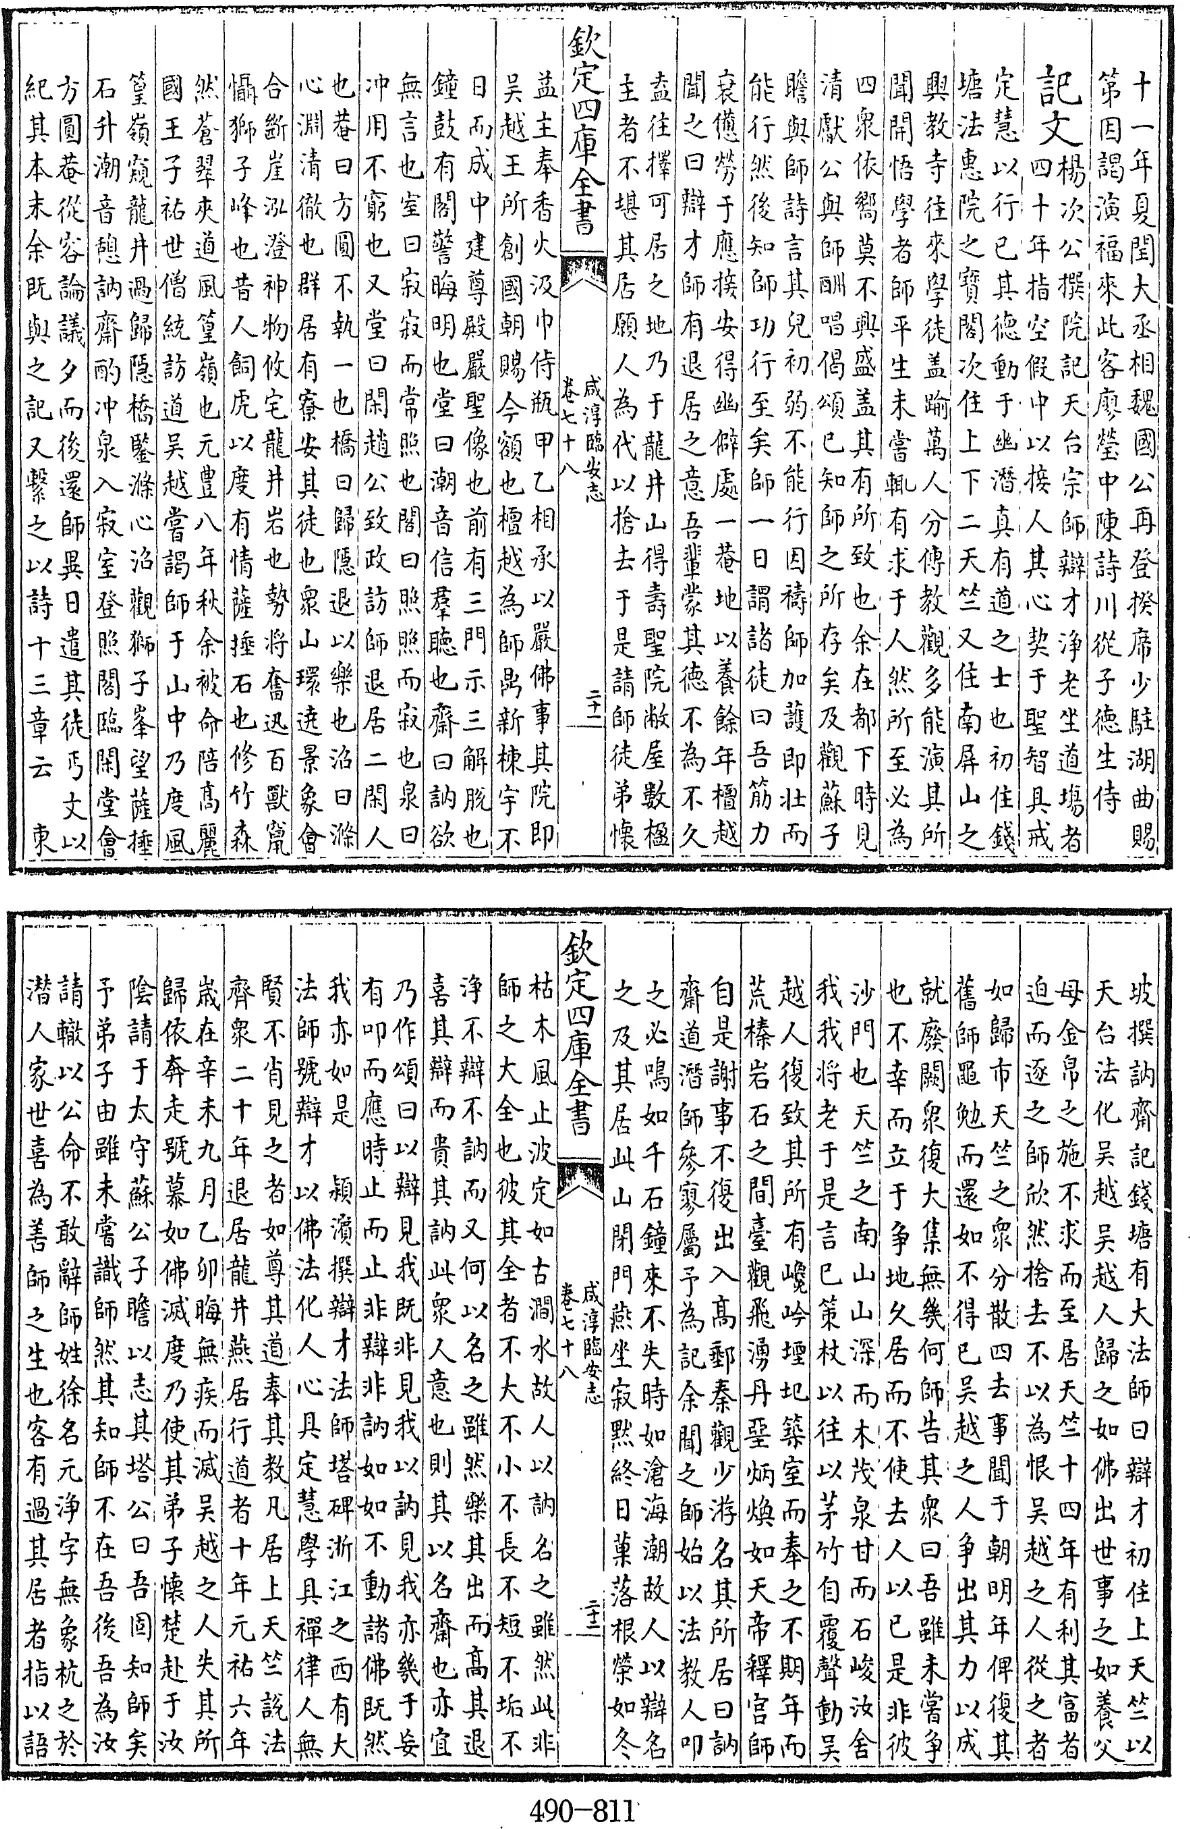 十一年夏閏大丞相魏國公再登揆席少駐湖曲賜
第因謁演福來此客廖瑩中陳詩川從子德生侍
記文
楊次公撰院記天台宗師辯才淨老坐道場者
四十年指空假中以接人其心契于聖智具戒
定慧以行已其德動于幽潛真有道之士也初住錢
塘法惠院之寶閣次住上下二天竺又住南屏山之
興教寺往來學徒盖踰萬人分傳教觀多能演其所
聞開悟學者師平生未嘗輒有求于人然所至必為
四衆依嚮莫不興盛盖其有所致也余在都下時見
清獻公與師酬唱偈頌已知師之所存矣及觀蘇子
瞻與師詩言其兒初弱不能行因禱師加䕶即壯而
能行然後知師功行至矣師一日謂諸徒曰吾筋力
衰憊勞于應接安得幽僻處一菴地以養餘年檀越
聞之曰辯才師有退居之意吾輩蒙其德不為不久
盍往擇可居之地乃于龍井山得壽聖院敝屋數楹
主者不堪其居願人為代以捨去于是請師徒弟懷
欽定四庫全書
咸淳臨安志
卷七十八
二十二
益主奉香火汲巾侍瓶甲乙相承以嚴佛事其院即
吳越王所創國朝賜今額也檀越為師鼎新棟宇不
日而成中建尊殿嚴聖像也前有三門示三解脫也
鐘鼓有閣警晦明也堂曰潮音信羣聽也齋曰訥欲
無言也室曰寂寂而常照也閣曰照照而寂也泉曰
冲用不窮也又堂曰閑趙公致政訪師退居二閑人
也菴曰方圓不執一也橋曰歸隱退以樂也沼曰滌
心淵清徹也群居有寮安其徒也衆山環遶景象會
合斷崖泓澄神物攸宅龍井岩也勢將奮迅百獸竄
慴獅子峰也昔人飼虎以度有情薩埵石也修竹森
然蒼翠夾道風篁嶺也元豊八年秋余被命陪高麗
國王子祐世僧統訪道吳越嘗謁師于山中乃度風
篁嶺窺龍井過歸隱橋鑒滌心沼觀獅子峯望薩埵
石升潮音憩訥齋酌冲泉入寂室登照閣臨閑堂會
方圓菴從容論議夕而後還師異日遣其徒丐文以
紀其本末余既與之記又繫之以詩十三章云　東
坡撰訥齋記錢塘有大法師曰辯才初住上天竺以
天台法化吳越吳越人歸之如佛出世事之如養父
母金帛之施不求而至居天竺十四年有利其富者
迫而逐之師欣然捨去不以為恨吳越之人從之者
如歸市天竺之衆分散四去事聞于朝明年俾復其
舊師黽勉而還如不得已吳越之人争出其力以成
就廢闕衆復大集無幾何師告其衆曰吾雖未嘗争
也不幸而立于争地久居而不使去人以已是非彼
沙門也天竺之南山山深而木茂泉甘而石峻汝舍
我我將老于是言已策杖以往以茅竹自覆聲動吳
越人復致其所有巉岭堙圯築室而奉之不期年而
荒榛岩石之間臺觀飛湧丹堊炳煥如天帝釋宮師
自是謝事不復出入高郵秦觀少游名其所居曰訥
齋道潛師參寥屬予為記余聞之師始以法教人叩
之必鳴如千石鐘來不失時如滄海潮故人以辯名
之及其居此山閉門燕坐寂默終日葉落根榮如冬
欽定四庫全書
咸淳臨安志
卷七十八
二十三
枯木風止波定如古澗水故人以訥名之雖然此非
師之大全也彼其全者不大不小不長不短不垢不
淨不辯不訥而又何以名之雖然樂其出而高其退
喜其辯而貴其訥此衆人意也則其以名齋也亦宜
乃作頌曰以辯見我既非見我以訥見我亦幾于妄
有叩而應時止而止非辯非訥如如不動諸佛既然
我亦如是　潁濱撰辯才法師塔碑浙江之西有大
法師號辯才以佛法化人心具定慧學具禪律人無
賢不肖見之者如尊其道奉其教凡居上天竺説法
齊衆二十年退居龍井燕居行道者十年元祐六年
歲在辛未九月乙卯晦無疾而滅吳越之人失其所
歸依奔走號慕如佛滅度乃使其弟子懷楚赴于汝
陰請于太守蘇公子瞻以志其塔公曰吾固知師矣
予弟子由雖未嘗識師然其知師不在吾後吾為汝
請轍以公命不敢辭師姓徐名元淨字無象杭之於
潛人家世喜為善師之生也客有過其居者指以語
490-811